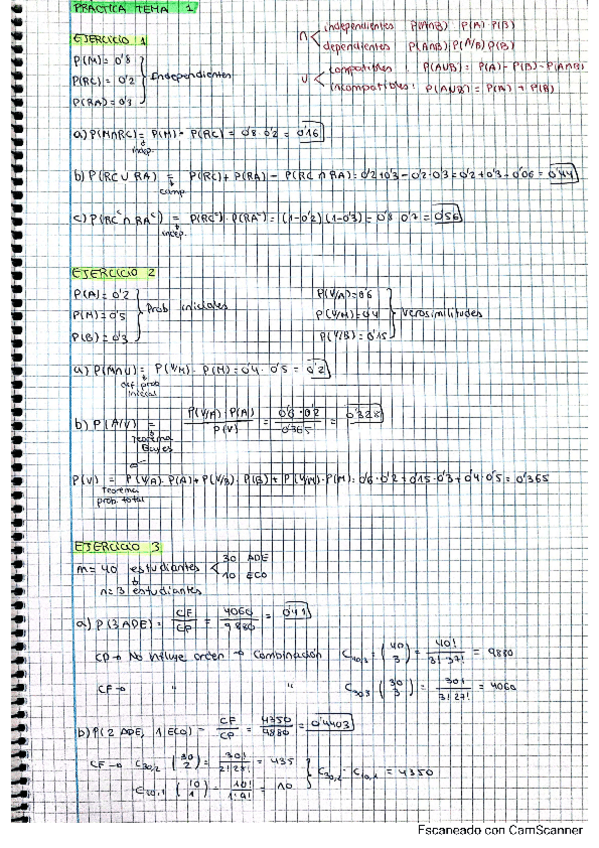 PRACTICA TEMA 1
∩ < independientes P(A∩B) P(A) P(B)
dependientes P(A∩B) P(A/B) P(B)
∪ < compatibles : P(A∪B) = P(A) - P(B) - P(A∩B)
incompatibles : P(A∪B) = P(A) + P(B)
EJERCICIO 1
P(M) = 0'8
P(RC) = 0'2 } Independientes
P(RA) = 0'3
a) P(M∩RC) = P(M) · P(RC) = 0'8 · 0'2 = 0'16
indep.
b) P(RC ∪ RA) = P(RC) + P(RA) - P(RC ∩ RA) = 0'2 + 0'3 - 0'2 · 0'3 = 0'2 + 0'3 - 0'06 = 0'44
comp
c) P(RCᶜ ∩ RAᶜ) = P(RCᶜ) · P(RAᶜ) = (1-0'2) (1-0'3) = 0'8 0'7 = 0'56
indep.
EJERCICIO 2
P(A) = 0'2 P(V/A) = 0'6
P(M) = 0'5 } Prob iniciales P(V/M) = 0'4 } Verosimilitudes
P(B) = 0'3 P(V/B) = 0'15
a) P(M∩V) = P(V/M) · P(M) = 0'4 · 0'5 = 0'2
def. prob
inicial
b) P(A/V) = P(V/A) · P(A) / P(V) = 0'6 · 0'2 / 0'365 = 0'328
Teorema
Bayes
P(V) = P(V/A) · P(A) + P(V/B) · P(B) + P(V/M) · P(M) = 0'6 · 0'2 + 0'15 · 0'3 + 0'4 · 0'5 = 0'365
Teorema
prob. total
EJERCICIO 3
m = 40 estudiantes < 30 ADE
10 ECO
n = 3 estudiantes
a) P(3 ADE) = CF / CP = 4060 / 9880 = 0'41
CP → No influye orden → Combinación C40,3 = (40 3) = 40! / 3! 37! = 9880
CF → " " C30,3 (30 3) = 30! / 3! 27! = 4060
b) P(2 ADE, 1 ECO) = CF / CP = 4350 / 9880 = 0'4403
CF → C30,2 (30 2) = 30! / 2! 28! = 435 } C30,2 · C10,1 = 4350
C10,1 (10 1) = 10! / 1! 9! = 10
Escaneado con CamScanner